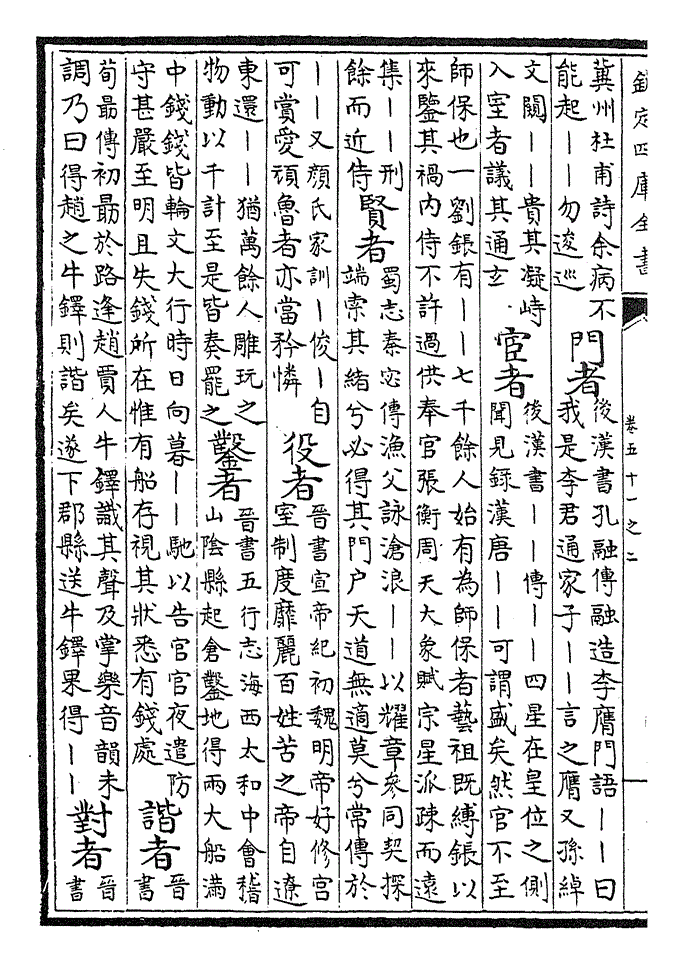 欽定四庫全書
卷五十一之二
冀州杜甫詩余病不
能起丨丨勿逡巡
門者
後漢書孔融傳融造李膺門語丨丨曰
我是李君通家子丨丨言之膺又孫綽
文闕丨丨貴其凝峙
入室者議其通玄
宦者
後漢書丨丨傳丨丨四星在皇位之側
聞見錄漢唐丨丨可謂盛矣然官不至
師保也一劉鋹有丨丨七千餘人始有為師保者藝祖既縛鋹以
來鑒其禍內侍不許過供奉官張衡周天大象賦宗星派疎而遠
集丨丨刑
餘而近侍
賢者
蜀志秦宓傳漁父詠滄浪丨丨以耀章參同契探
端索其緒兮必得其門户天道無適莫兮常傳於
丨丨又顏氏家訓丨俊丨自
可賞愛頑魯者亦當矜憐
役者
晉書宣帝紀初魏明帝好修宮
室制度靡麗百姓苦之帝自遼
東還丨丨猶萬餘人雕玩之
物動以千計至是皆奏罷之
鑿者
晉書五行志海西太和中會稽
山陰縣起倉鑿地得兩大船滿
中錢錢皆輪文大行時日向暮丨丨馳以告官官夜遣防
守甚嚴至明旦失錢所在惟有船存視其狀悉有錢處
諧者
晉
書
荀朂傳初朂於路逢趙賈人牛鐸識其聲及掌樂音韻未
調乃曰得趙之牛鐸則諧矣遂下郡縣送牛鐸果得丨丨
對者
晉
書